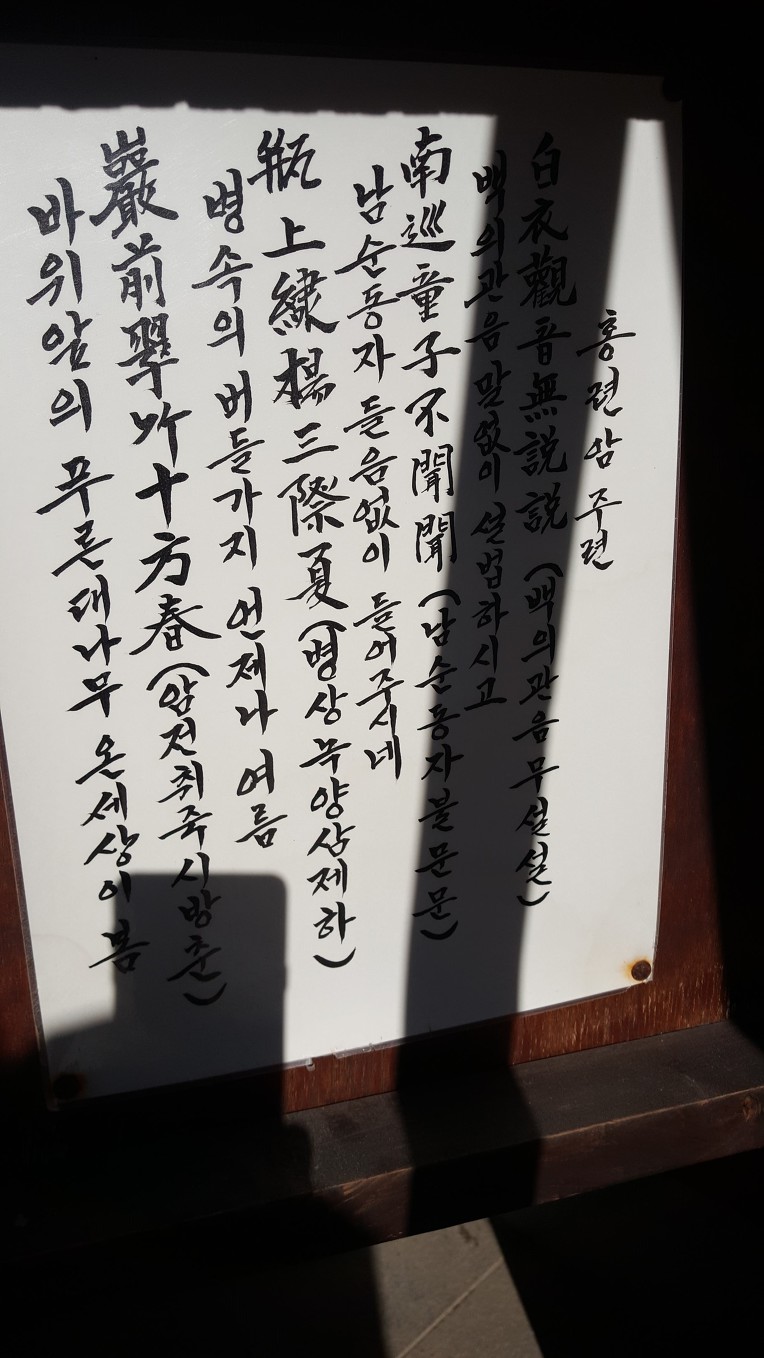 홍련암 주련
白衣觀音無說說 (백의관음무설설)
백의관음 말없이 설법하시고
南巡童子不聞聞 (남순동자불문문)
남순동자 들음없이 들어주시네
瓶上綠楊三際夏 (병상녹양삼제하)
병속의 버들가지 언제나 여름
巖前翠竹十方春 (암전취죽시방춘)
바위앞의 푸른대나무 온세상이 봄